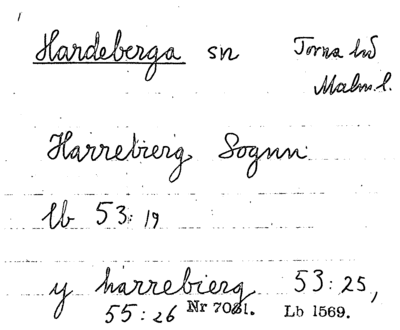 Hardeberga sn Torna hd
Malm. l.
Harrebierg Sognn
lb 53:19
y harrebierg 53:25,
55:26 Nr 7031. Lb 1569.